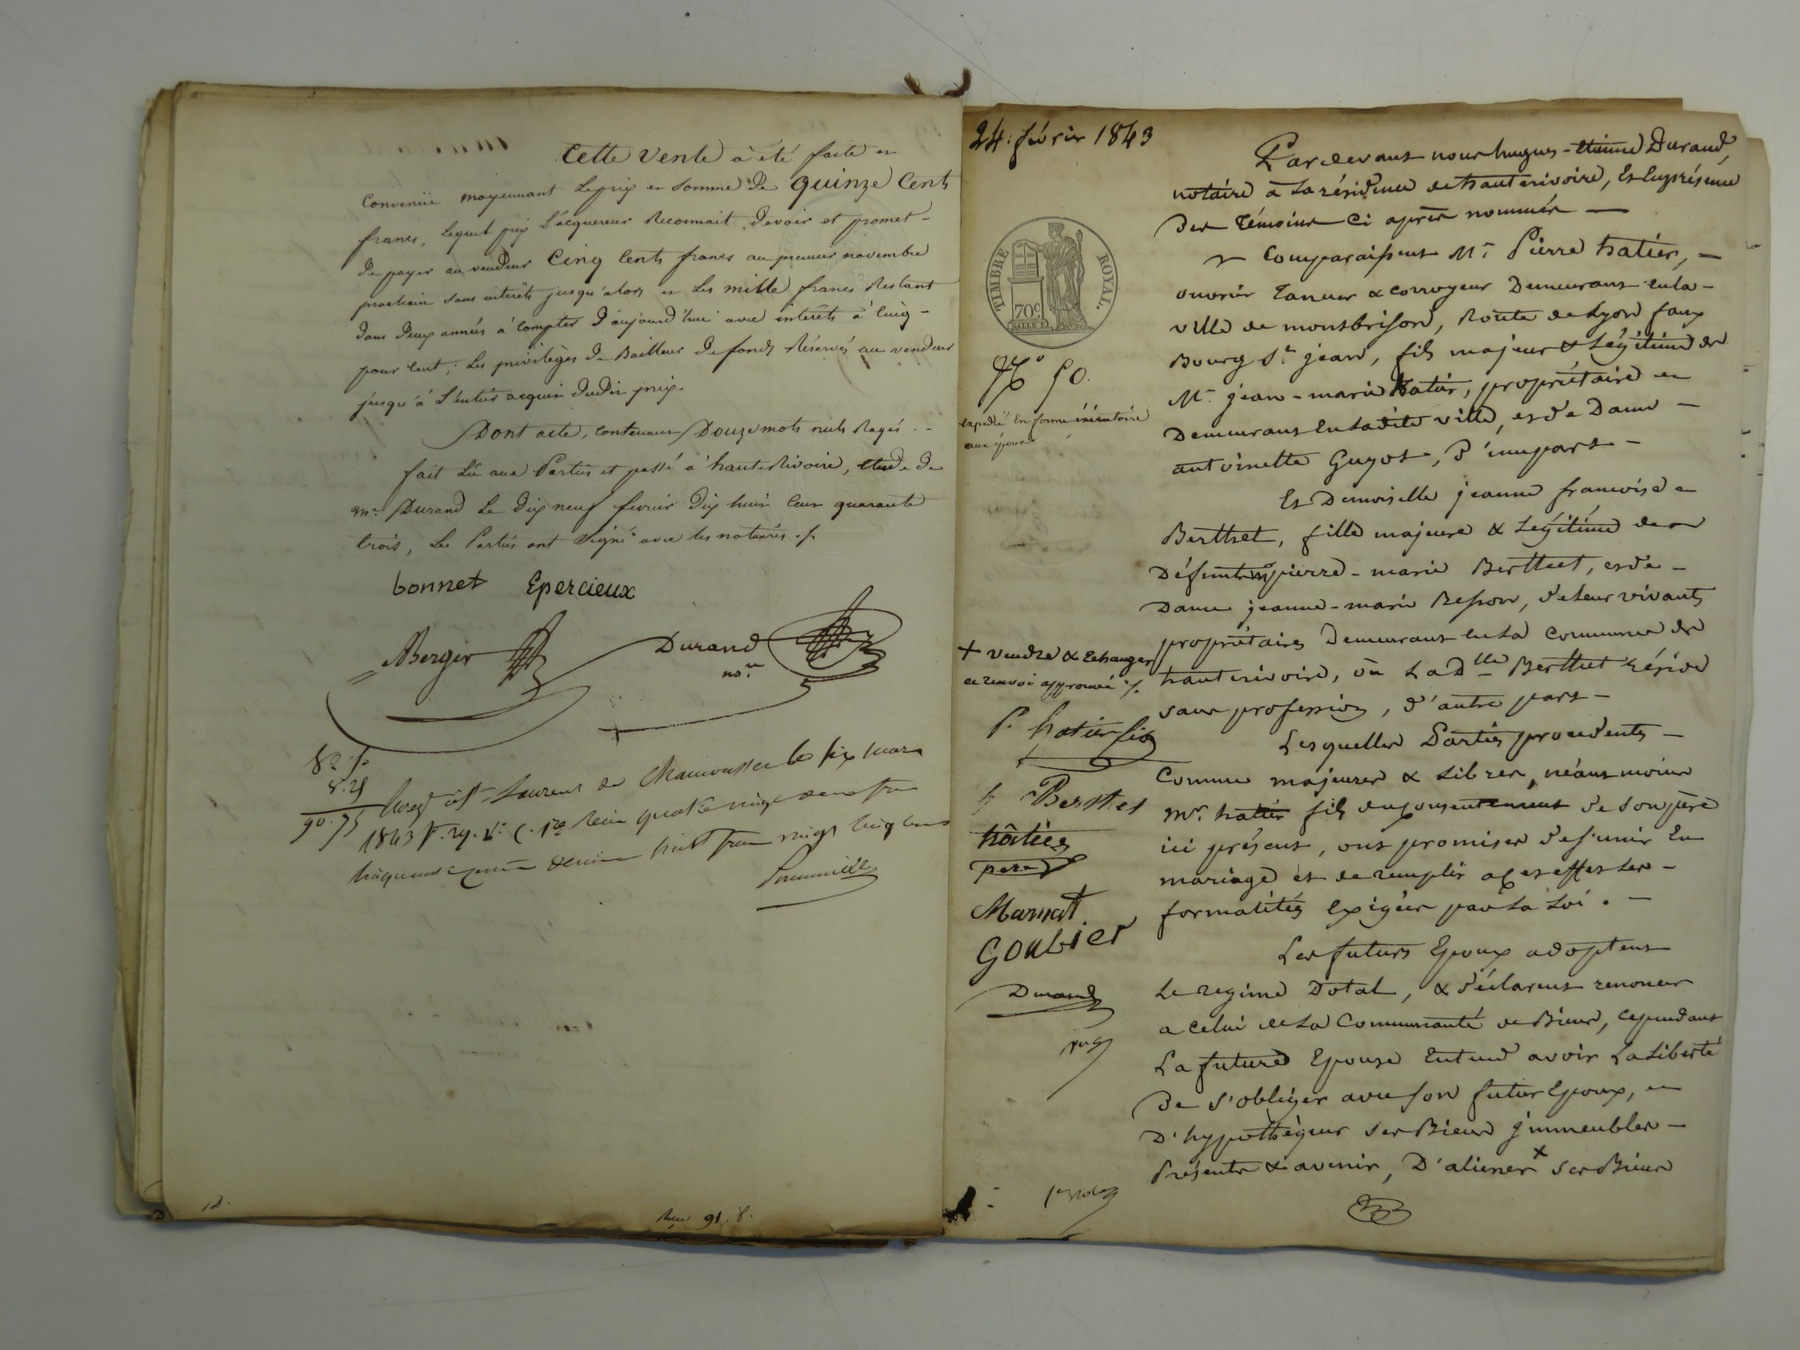 Cette vente a été faite et
convenue moyennant le prix et somme de quinze cents
francs, lequel prix l'acquéreur reconnait devoir et promet
de payer au vendeur cinq cents francs au premier novembre
prochain sans intérêts jusqu'alors et les mille francs restant
dans deux années à compter d'aujourd'hui avec intérêts à cinq
pour cent, les privilèges de bailleur de fonds réservés au vendeur
jusqu'à l'entier acquit dudit prix.
Dont acte, contenant douze mots nuls rayés.
fait lu aux Parties et passé à hauterivoire, étude de
me. Durand le dix neuf février dix huit cent quarante
trois, les Parties ont signé avec les notaires ./.
bonnet Epercieux
Berger Durand
no.re
82.50
8.25
90.75
Enreg. à St. Laurent de Chamousset le six mars
1843 f. 29. v. c. 1re reçu quatre vingt deux francs
cinquante centimes decime huit francs vingt cinq cent
24. février 1843
TIMBRE ROYAL
70c
No 50.
expédié en forme exécutoire
aux époux
Pardevant nous hugues-étienne Durand,
notaire à la résidence de hauterivoire, et en présence
des témoins ci après nommés —
Comparaissent Mr. Pierre hatier, —
ouvrier tanneur & corroyeur demeurant en la —
ville de montbrison, Route de Lyon faux
Bourg St. jean, fils majeur & légitime de
Mr. jean-marie hatier, propriétaire et
demeurant en ladite ville, et de Dame —
antoinette Guyot, d'une part —
Et Demoiselle jeanne françoise
Berthet, fille majeure & légitime de
défunts pierre-marie Berthet, et de —
Dame jeanne-marie Besson, de leur vivants
propriétaires demeurant en la commune de
hauterivoire, où la dlle Berthet réside
sans profession, d'autre part —
Lesquelles Parties procédents —
comme majeures & libres, néanmoins
mr. hatier fils du consentement de son père
ici présent, ont promises de s'unir en
mariage et de remplir a cet effet les —
formalités exigées par la loi. —
Les futurs Epoux adoptent
le régime Dotal, & déclarent renoncer
a celui de la communauté de Biens, cependant
La future Epouse entend avoir la liberté
de s'obliger avec son futur Epoux, et
D'hypothéquer ses Biens immeubles —
Présents & avenir, D'aliener + ses Biens
+ vendre & Echanger
ce renvoi approuvé ./.
P. hatier fils
Berthet
hâtier
pere
Marnat
Goubier
Durand